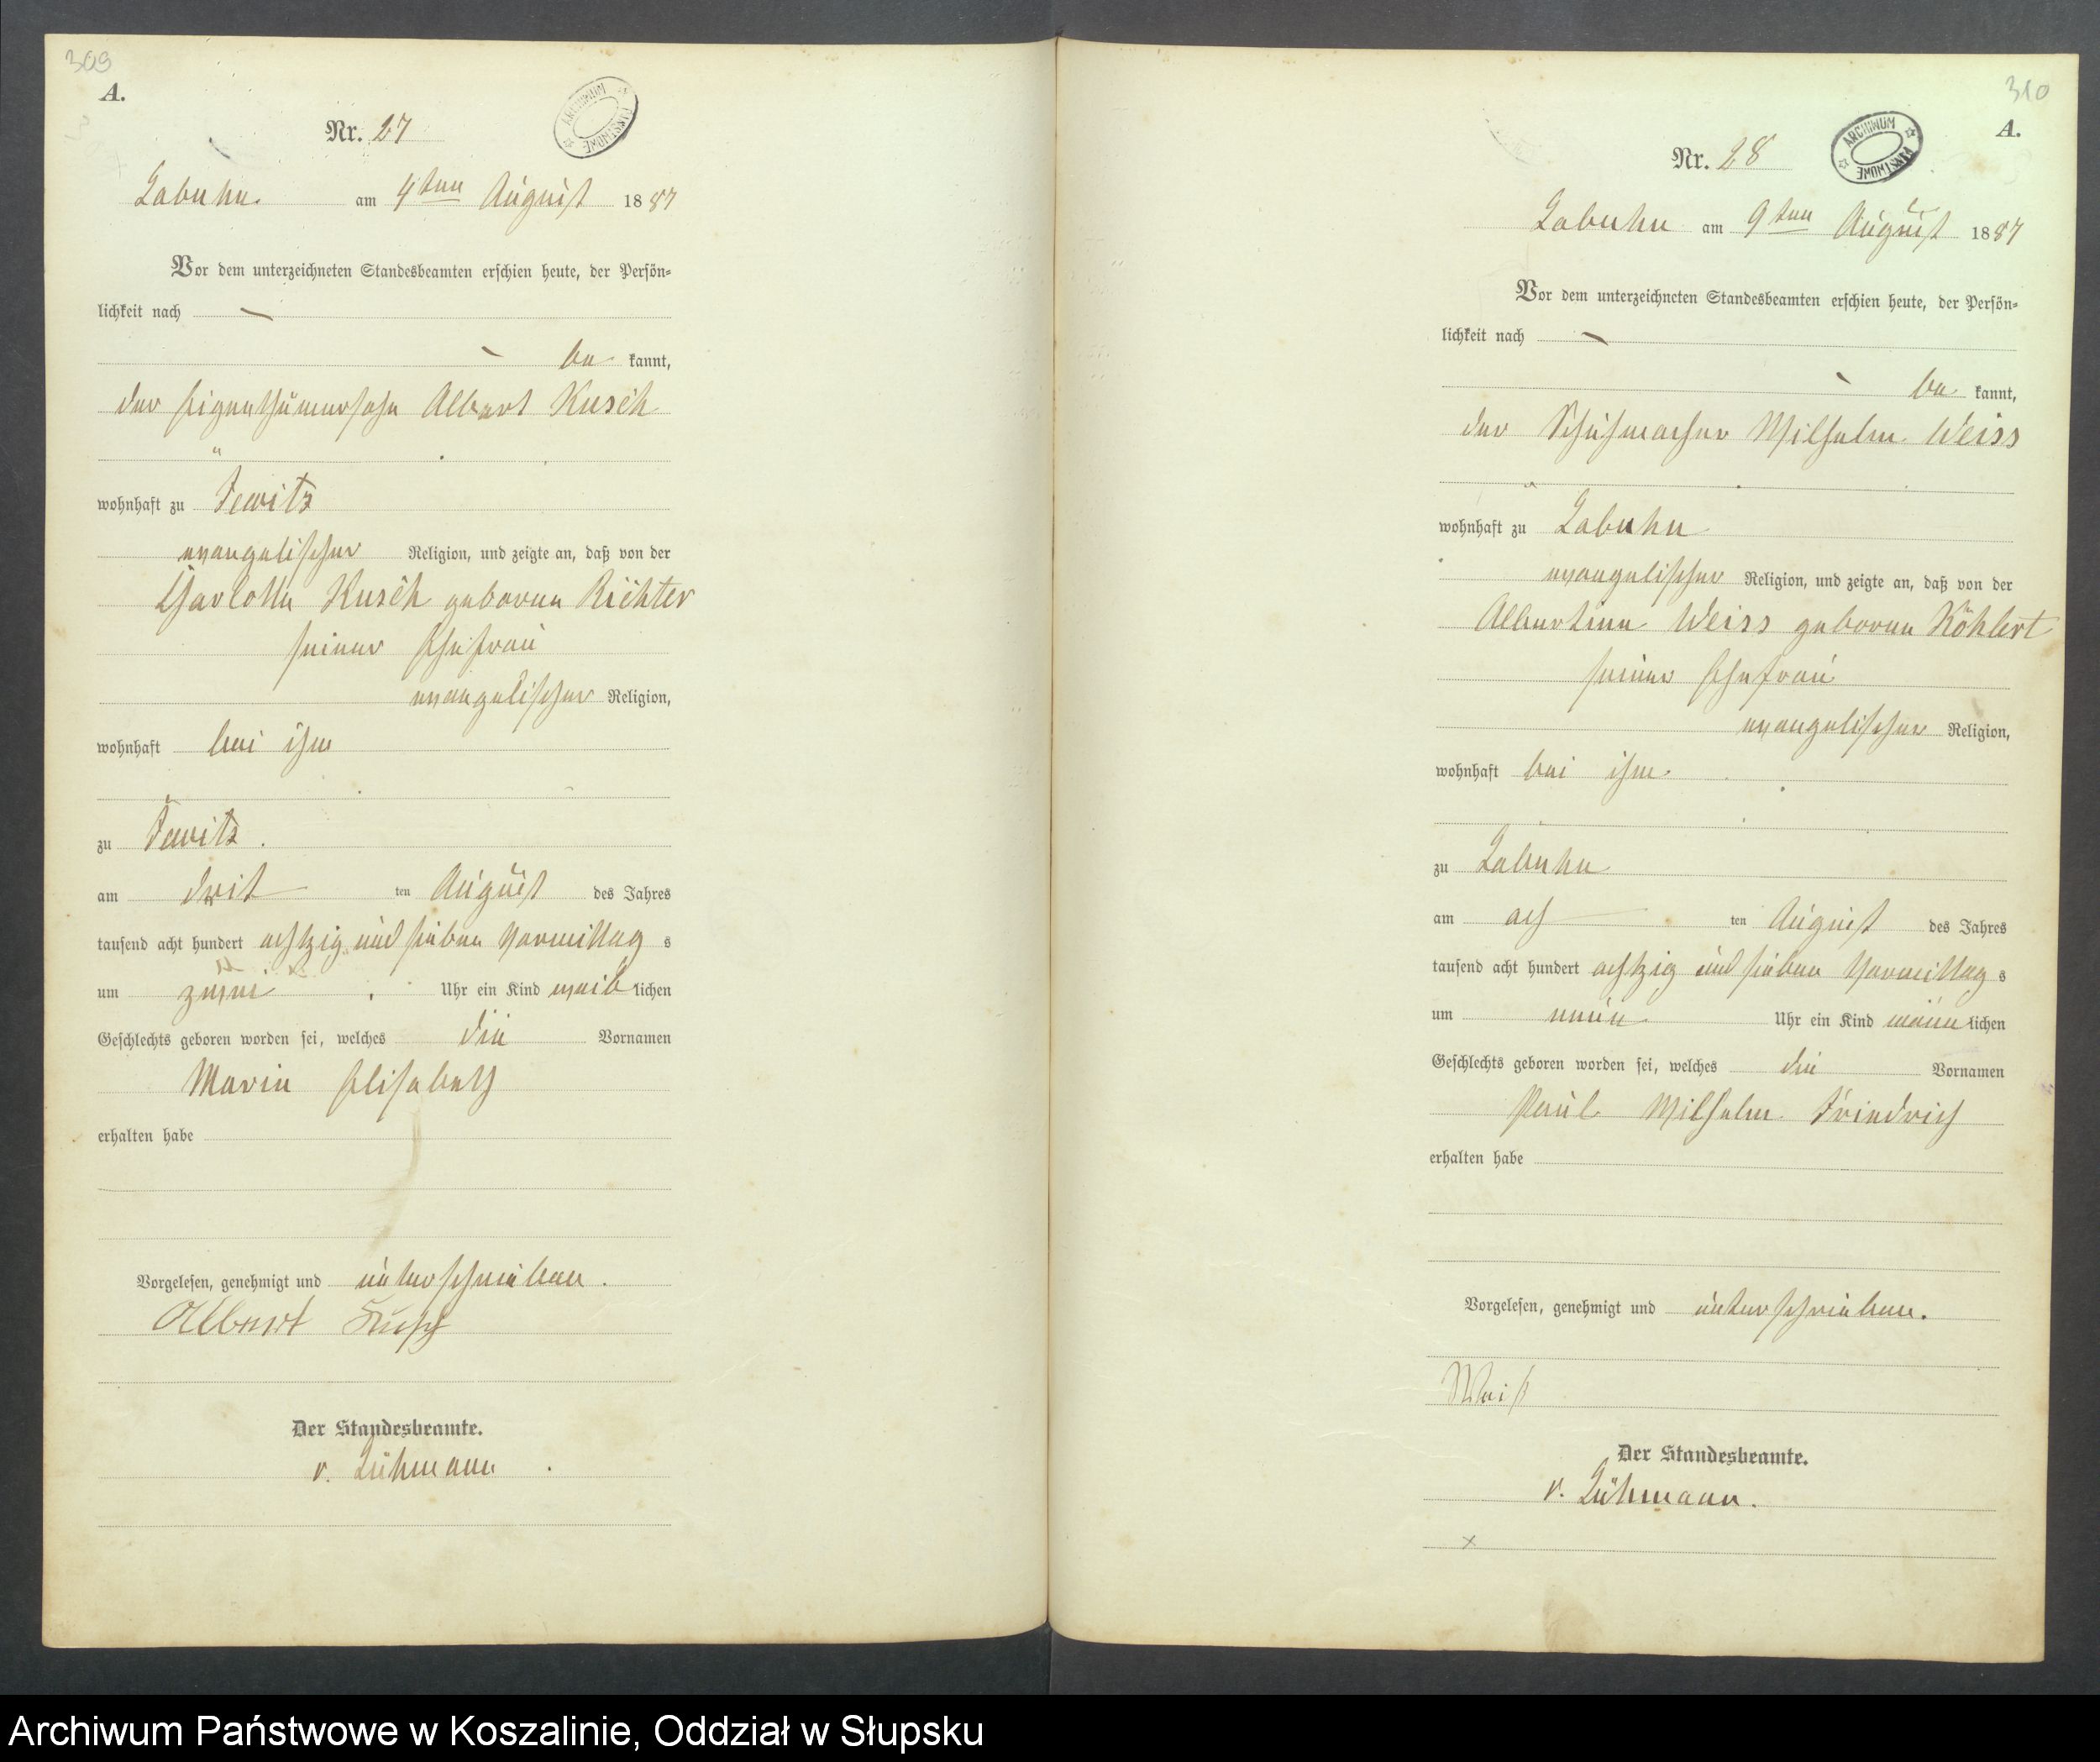 309
A.
Nr. 27
ARCHIWUM PAŃSTWOWE
Labuhn. am 4ten August 1887
Vor dem unterzeichneten Standesbeamten erschien heute, der Persön-
lichkeit nach —
— be kannt,
der Eigenthümersohn Albert Kusch
wohnhaft zu Jewitz
evangelischer Religion, und zeigte an, daß von der
Charlotte Kusch geborene Richter
seiner Ehefrau
evangelischer Religion,
wohnhaft bei ihm
zu Jewitz.
am drit ten August des Jahres
tausend acht hundert achtzig und sieben Vormittag s
um zwei Uhr ein Kind weib lichen
Geschlechts geboren worden sei, welches die Vornamen
Marie Elisabeth
erhalten habe
Vorgelesen, genehmigt und unterschrieben.
Albert Kusch
Der Standesbeamte.
v. Lühmann
310
A.
Nr. 28
ARCHIWUM PAŃSTWOWE
Labuhn am 9ten August 1887
Vor dem unterzeichneten Standesbeamten erschien heute, der Persön-
lichkeit nach —
— be kannt,
der Schuhmacher Wilhelm Weiss
wohnhaft zu Labuhn
evangelischer Religion, und zeigte an, daß von der
Albertine Weiss geborene Köhlert
seiner Ehefrau
evangelischer Religion,
wohnhaft bei ihm
zu Labuhn
am ach ten August des Jahres
tausend acht hundert achtzig und sieben Vormittag s
um neun Uhr ein Kind männ lichen
Geschlechts geboren worden sei, welches die Vornamen
Paul Wilhelm Friedrich
erhalten habe
Vorgelesen, genehmigt und unterschrieben.
Weiß
Der Standesbeamte.
v. Lühmann.
x
Archiwum Państwowe w Koszalinie, Oddział w Słupsku